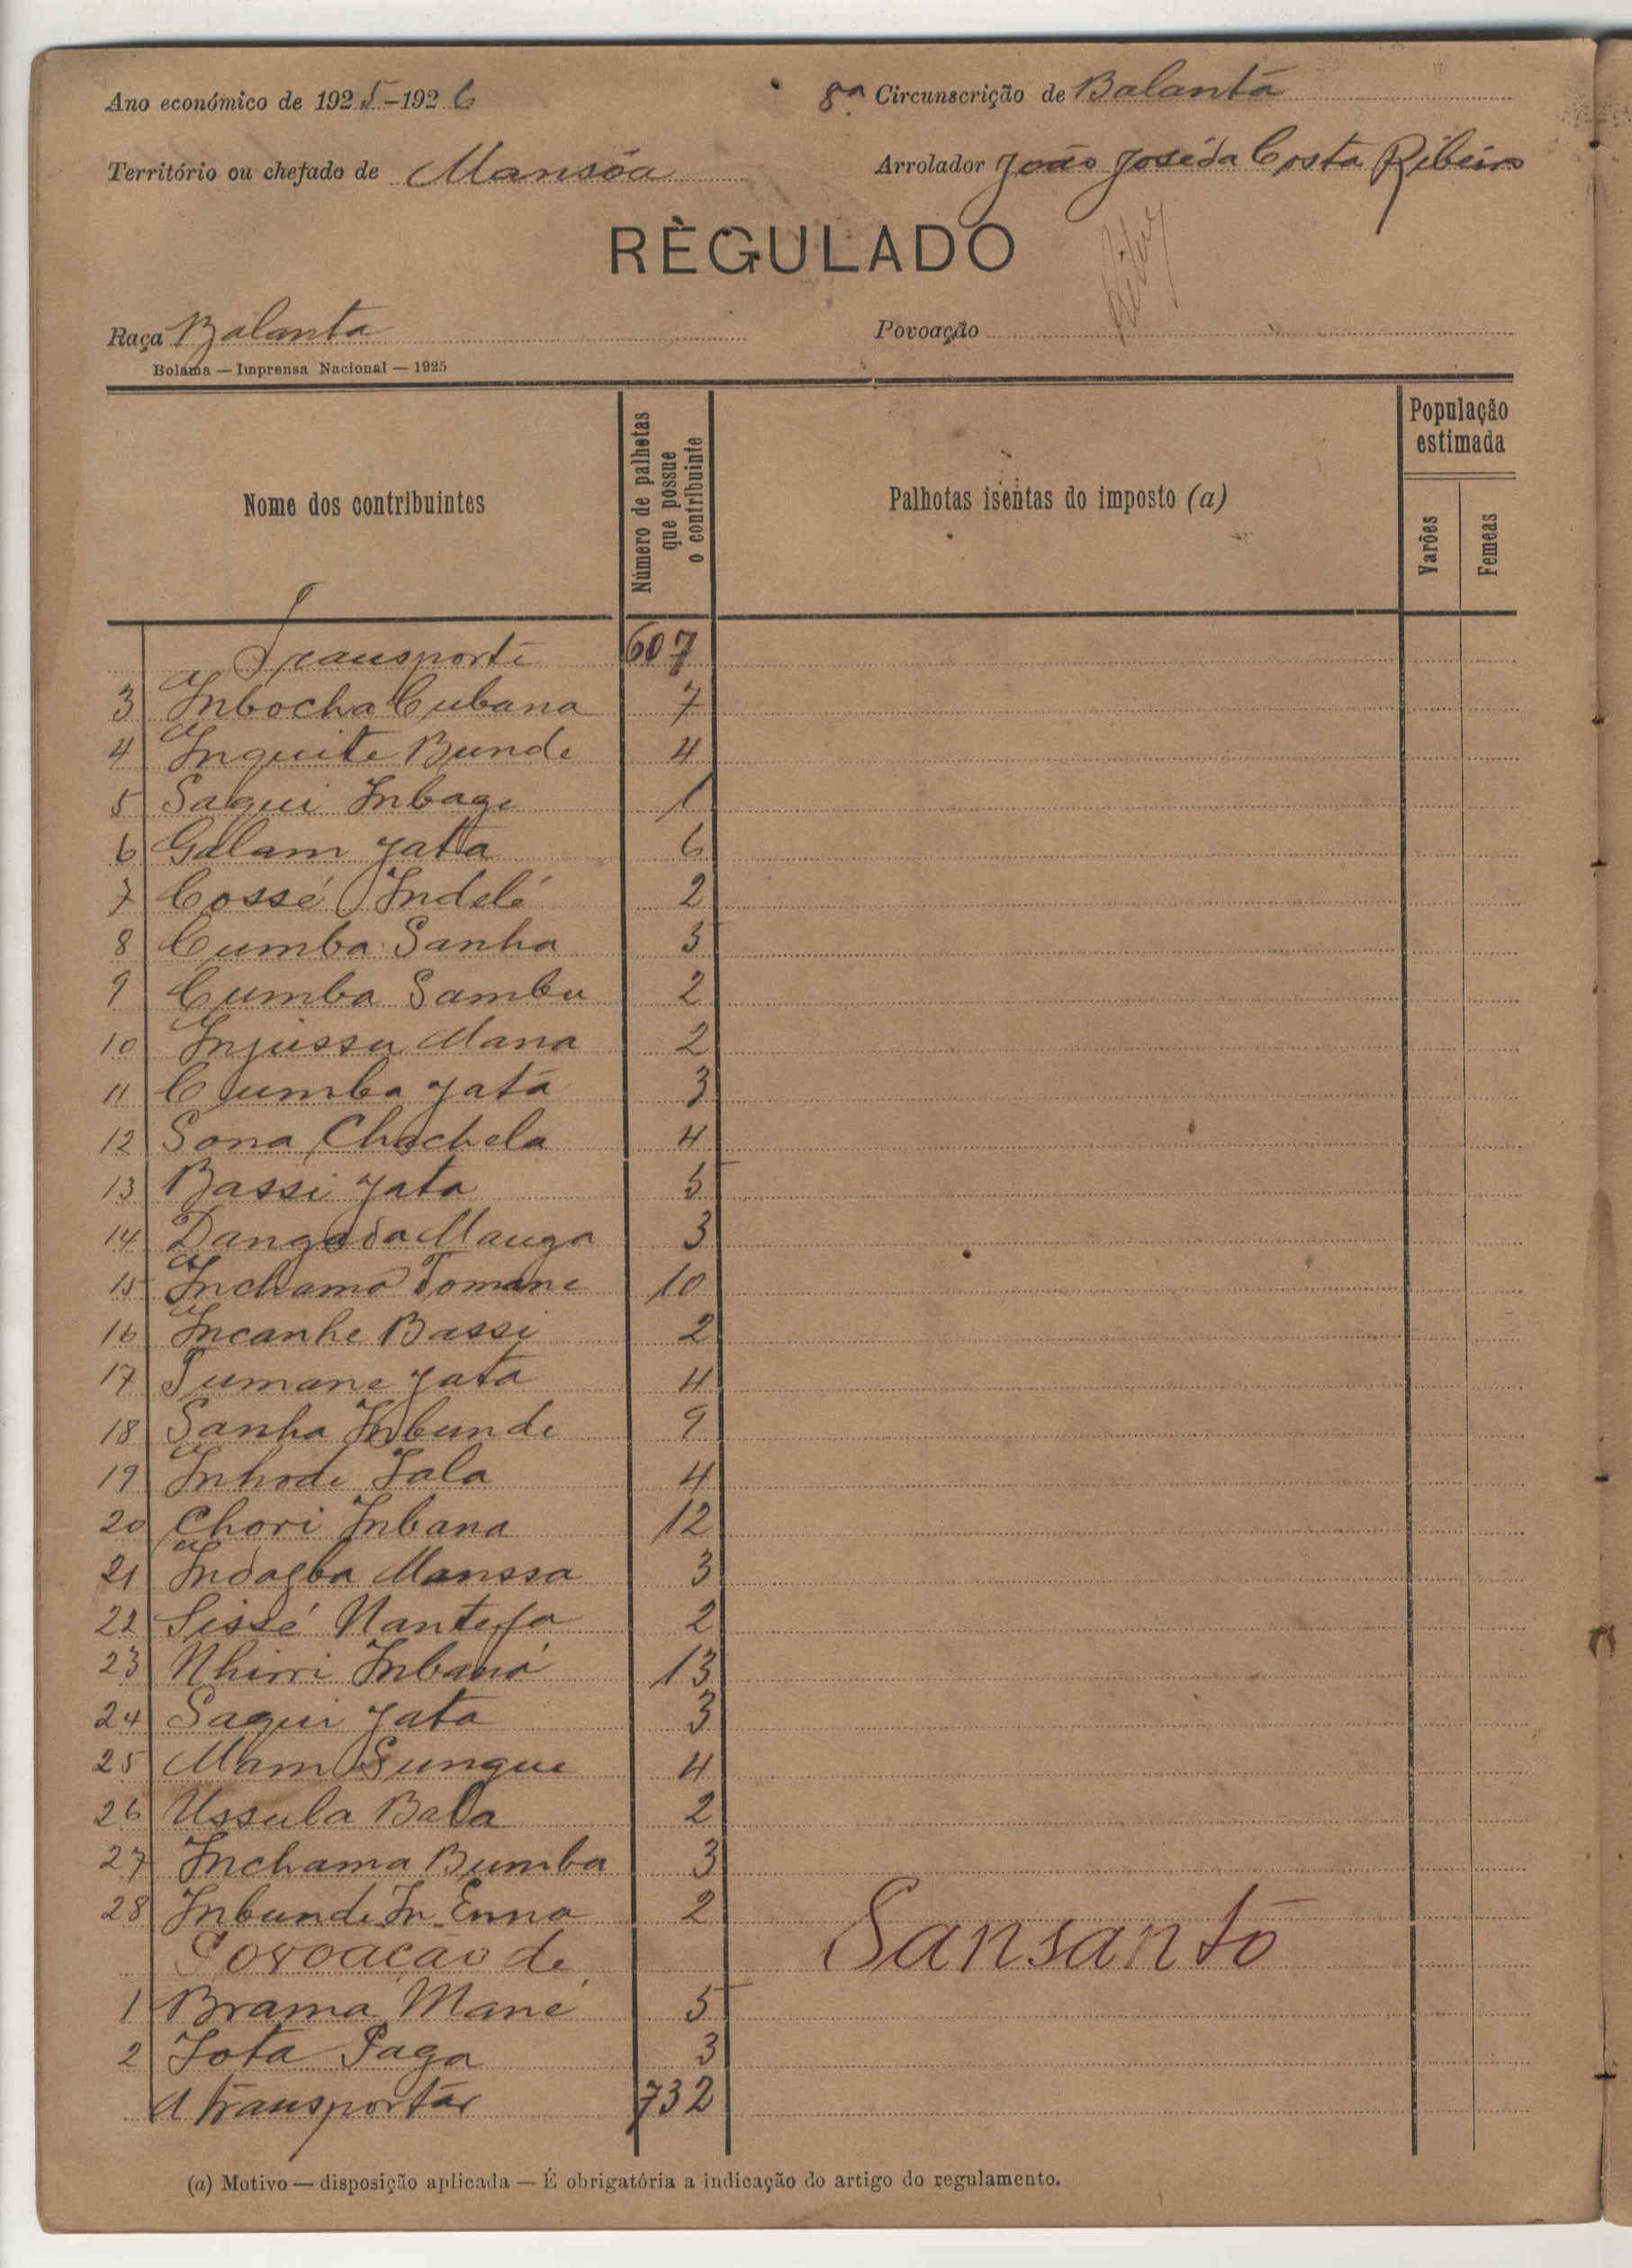 Ano económico de 1925-1926
8ª Circunscrição de Balanta
Território ou chefado de Mansôa
Arrolador João José da Costa Ribeiro
RÈGULADO
Raça Balanta
Povoação
Bolama — Imprensa Nacional — 1925
Nome dos contribuintes
Número de palhotas que possue o contribuinte
Palhotas isentas do imposto (a)
População estimada
Varões
Femeas
Transporte 607
3 Inbocha Cubana 7
4 Inquite Bunde 4
5 Saqui Inbage 1
6 Galam Yata 6
7 Cossé Indelé 2
8 Cumba Sanha 5
9 Cumba Sambu 2
10 Injussu Mana 2
11 Cumba Yata 3
12 Sona Chachela 4
13 Bassi Yata 5
14 Dangada Manga 3
15 Inchama Tomane 10
16 Incanhe Bassi 2
17 Tumane Yata 4
18 Sanha Inbunde 9
19 Inhode Fala 4
20 Chori Inbana 12
21 Indagba Manssa 3
22 Sissé Nantefa 2
23 Nhirri Inbaná 13
24 Saqui Yata 3
25 Mam Sungue 4
26 Ussula Bala 2
27 Inchama Bumba 3
28 Inbunde In Enna 2
Povoação de Sansanto
1 Brama Mané 5
2 Jota Paga 3
A transportar 732
(a) Motivo — disposição aplicada — É obrigatória a indicação do artigo do regulamento.